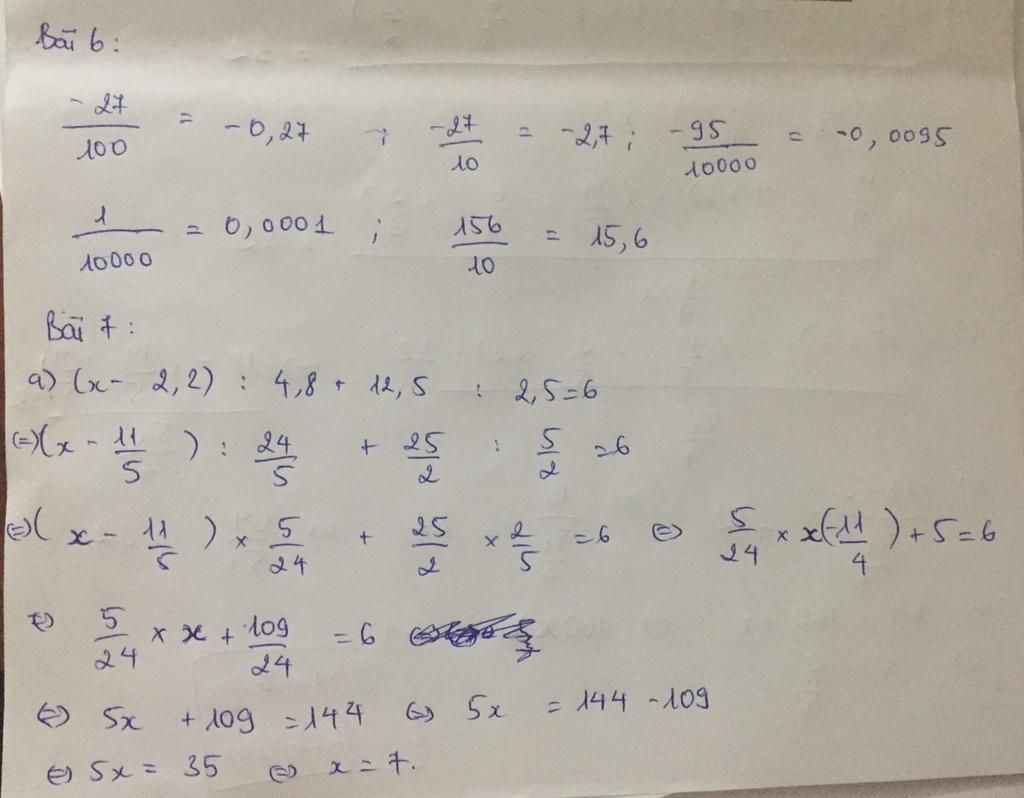 Bài 6:
-27/100 = -0,27 ; -27/10 = -2,7 ; -95/10000 = -0,0095
1/10000 = 0,0001 ; 156/10 = 15,6
Bài 7:
a) (x - 2,2) : 4,8 + 12,5 : 2,5 = 6
⇔ (x - 11/5) : 24/5 + 25/2 : 5/2 = 6
⇔ (x - 11/5) × 5/24 + 25/2 × 2/5 = 6 ⇔ 5/24 × x(-11/4) + 5 = 6
⇔ 5/24 × x + 109/24 = 6
⇔ 5x + 109 = 144 ⇔ 5x = 144 - 109
⇔ 5x = 35 ⇔ x = 7.